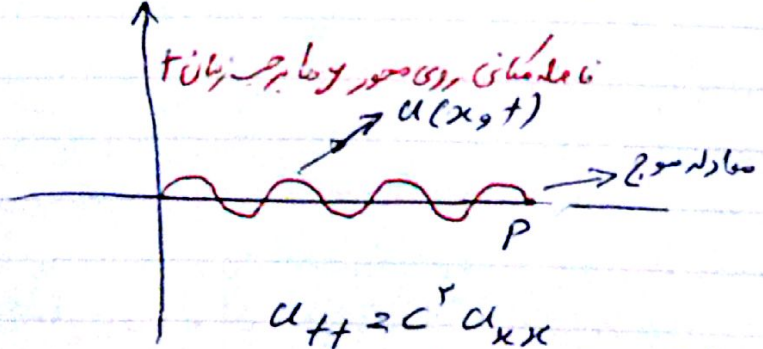 فاصله مکانی روی محور yها بر حسب زمان t
u(x,t)
معادله موج
P
u_tt = c^۲ u_xx